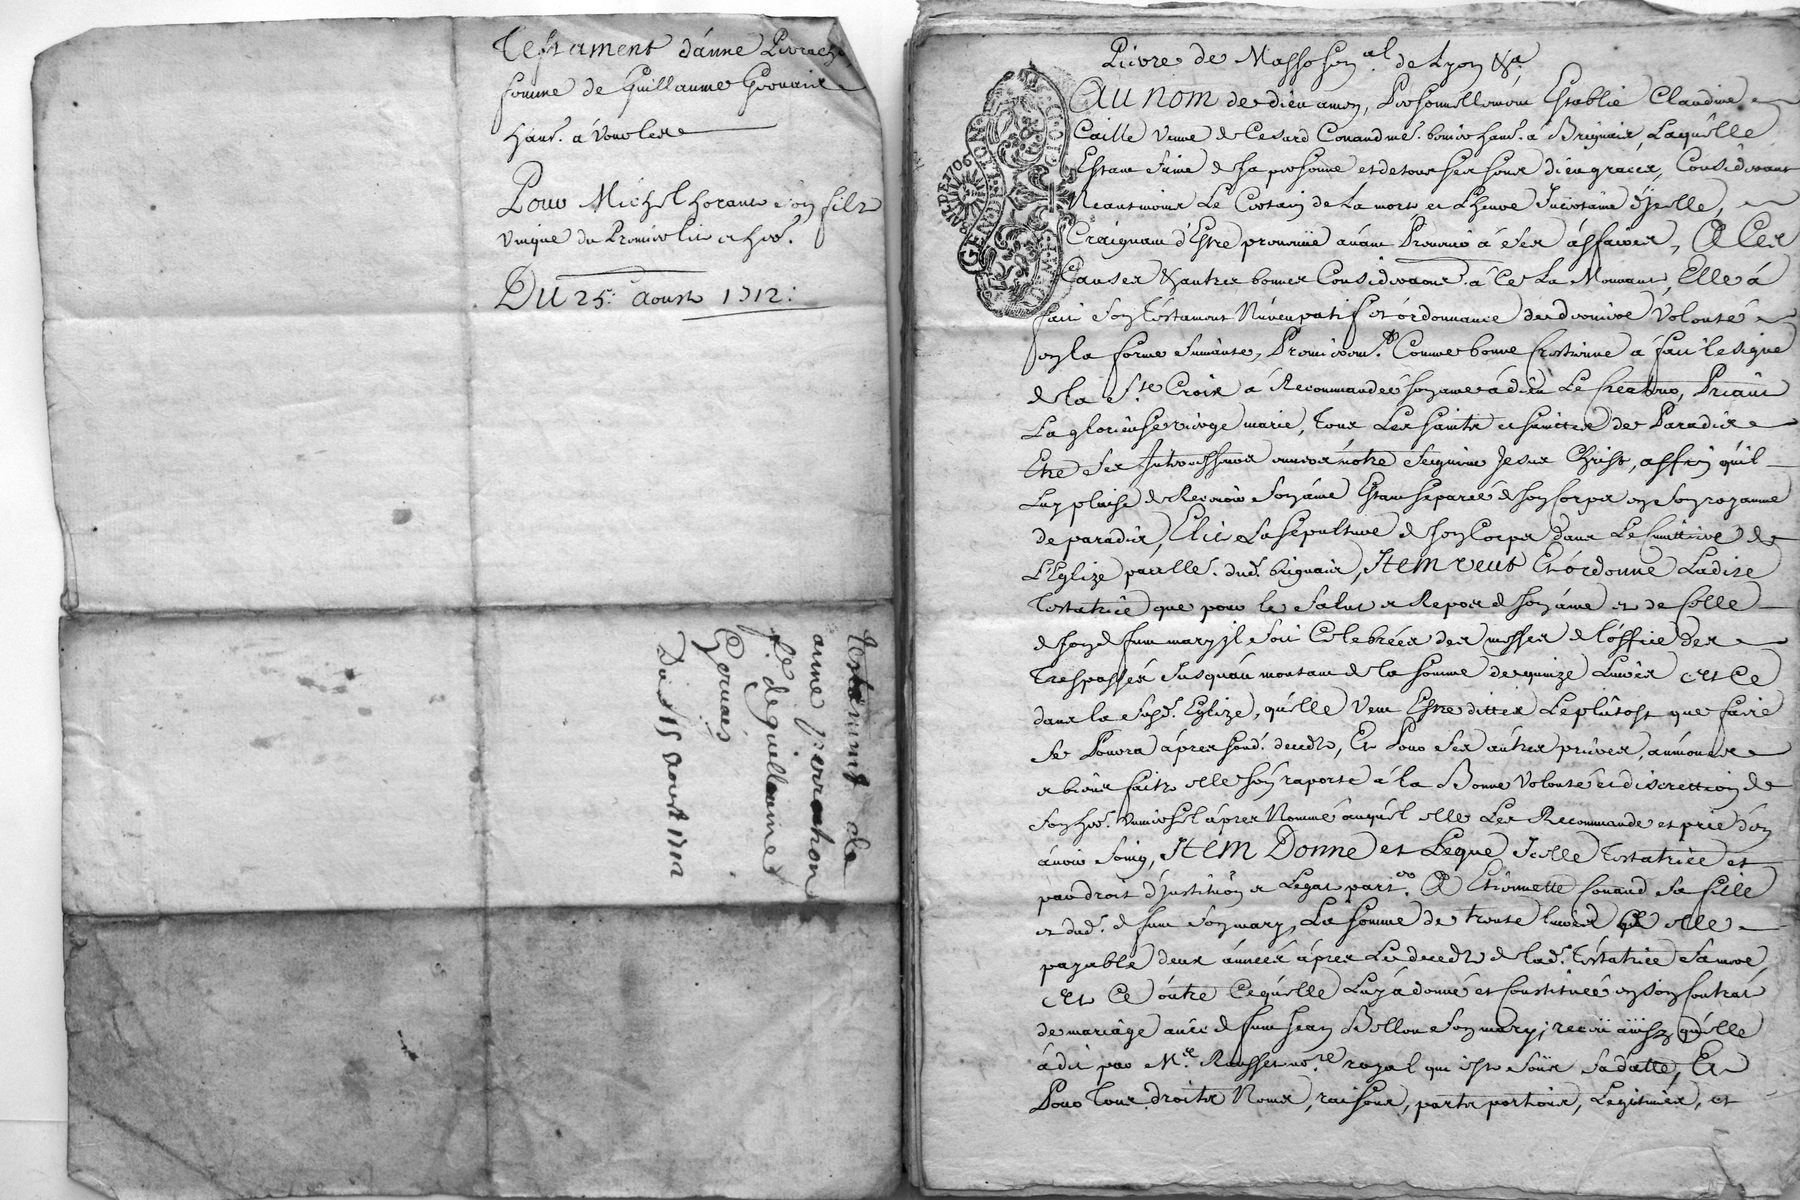 Testament d'anne
femme de Guillaume Gervais
hant. à Vourles
Pour Michel son filz
Unique du Premier lit et her.
DU 25: Aoust 1712:
testament de
anne perrachon
fe. de guillaume
Gervais
Du 25 Aoust 1712
de Masso Sen.al de Lyon &a
GEN. DE LYON
AU nom de dieu amen, Personnellement Establie Claudine
Caille Veuve de Cesard Couand hant. à Brignais, Laquelle
Estant Saine de sa personne et de tous ses sens dieu graces, Considerant
Neantmoins Le Certain de La mort et L'heure Incertaine d'jcelle,
Craignant d'Estre prevenue avant Pourvoir à Ses affaires, A Ces
Causes & autres bonnes Considerations à Ce La Mouvant, Elle à
fait Son testament Nuncupatif et ordonnance de derniere Volonté
en la forme Suivante, Premierem.t Comme bonne Crestienne a fait le signe
de la S.te Croix a Recommandée son ame à dieu Le Createur, Priant
La glorieuse vierge marie, tous Les saints et saintes de Paradis
Etre Ses Intercesseurs envers nôtre Seigneur Jesus Christ, affin qu'il
Luy plaise de Recevoir Son âme Estant Separée de son Corps en Son royaume
de paradis, Elit Sa Sepulture de son Corps dans Le Cimettiere de
L'Eglize parr.lle dud. brignais, Item veut Et ordonne Ladite
testatrice que pour le Salut et Repos de son âme et de Celle
de son deffunt mary jl Soit Celebrées des messes de l'office des
trespassés Jusqu'au montant de la Somme de quinze Livres Et Ce
dans la Susd. Eglize, qu'elle veut Estre dittes Le plûtost que faire
Se Pourra apres sond. deceds, Et Pour Ses autres prieres, aumônes
et biens faits elle s'en raporte à la Bonne Volonté et discrettion de
Son her. Universel apres Nommé auquel elle Les Recommande et prie d'en
avoir Soing, Item Donne et Legue Icelle testatrice et
par droit d'Institution et Legat part.er A Etiennette Couand Sa fille
et dud. deffunt Son mary, La Somme de trente livres
payable deux années apres Le deceds de lad. testatrice
Et Ce outre Ce qu'elle Luy à donné et Constituée en Son Contrat
de mariage avec deffunt Jean Bellon Son mary, receu ainsy qu'elle
à dit par M.e Rousset no.re royal qui est Soûs Sa datte, Et
Pour Tous droits Noms, raisons, parts portions, Legitimes, et